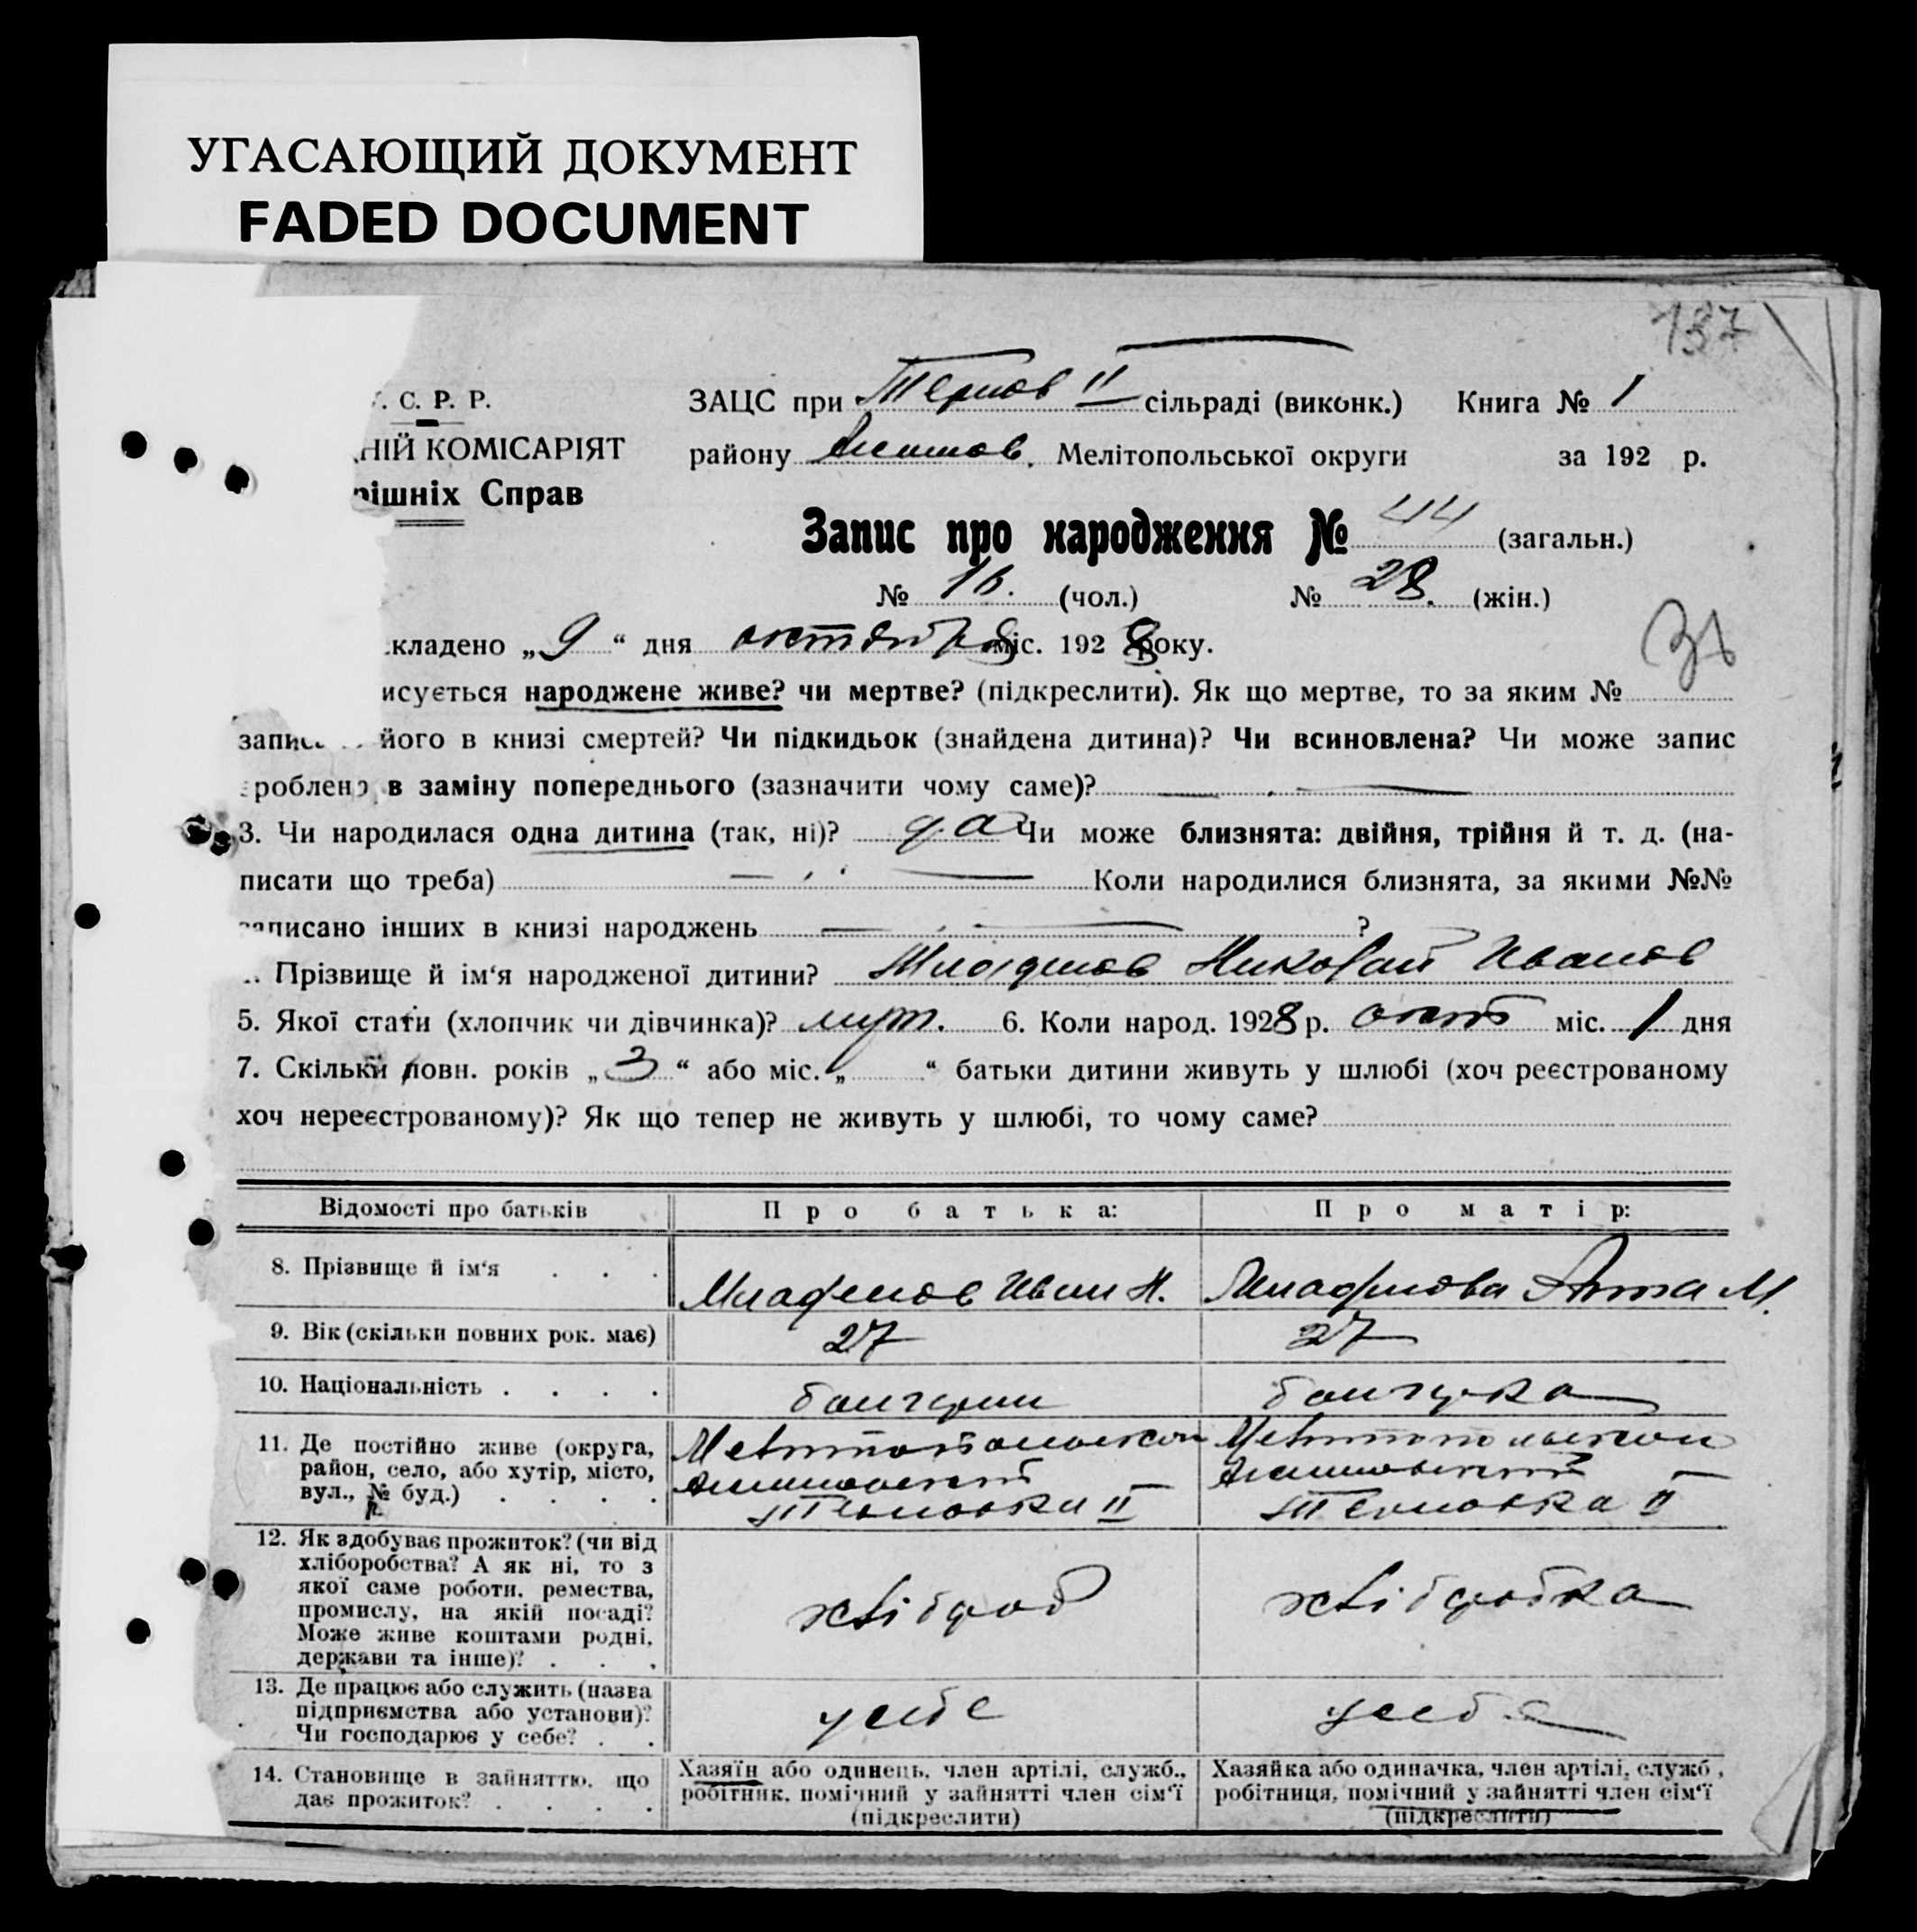 УГАСАЮЩИЙ ДОКУМЕНТ
FADED DOCUMENT
137
. С. Р. Р.
ЗАЦС при Тернов II сільраді (виконк.) Книга № 1
НІЙ КОМІСАРІЯТ
району Мелітопольської округи за 192 р.
рішніх Справ
Запис про народження № 44 (загальн.)
№ 16. (чол.) № 28. (жін.)
кладено „9“ дня октября міс. 1928 року.
исується народжене живе? чи мертве? (підкреслити). Як що мертве, то за яким №
його в книзі смертей? Чи підкидьок (знайдена дитина)? Чи всиновлена? Чи може запис
зроблено в заміну попереднього (зазначити чому саме)?
3. Чи народилася одна дитина (так, ні)? да Чи може близнята: двійня, трійня й т. д. (на-
писати що треба) Коли народилися близнята, за якими №№
записано інших в книзі народжень ?
Прізвище й ім‘я народженої дитини? Младенов Николай Иванов
5. Якої статі (хлопчик чи дівчинка)? муж. 6. Коли народ. 1928 р. окт міс. 1 дня
7. Скільки повн. років „3“ або міс. „ “ батьки дитини живуть у шлюбі (хоч реєстрованому
хоч нереєстрованому)? Як що тепер не живуть у шлюбі, то чому саме?
Відомості про батьків Про батька: Про матір:
8. Прізвище й ім‘я . . . Младенов Иван Н. Младенова Анна М.
9. Вік (скільки повних рок. має) 27 27
10. Національність . . . . болгарин болгарка
11. Де постійно живе (округа,
район, село, або хутір, місто,
вул., № буд.) . . . .
Терновка II Терновка II
12. Як здобуває прожиток? (чи від
хліборобства? А як ні, то з
якої саме роботи, ремества,
промислу, на якій посаді?
Може живе коштами родні,
держави та інше)? . . .
хлібороб хліборобка
13. Де працює або служить (назва
підприємства або установи)?
Чи господарює у себе? . .
у себе у себе
14. Становище в зайняттю, що
дає прожиток? . . . .
Хазяїн або одинець, член артілі, служб.,
робітник, помічний у зайнятті член сім‘ї
(підкреслити)
Хазяйка або одиначка, член артілі, служб,
робітниця, помічний у зайнятті член сім‘ї
(підкреслити)